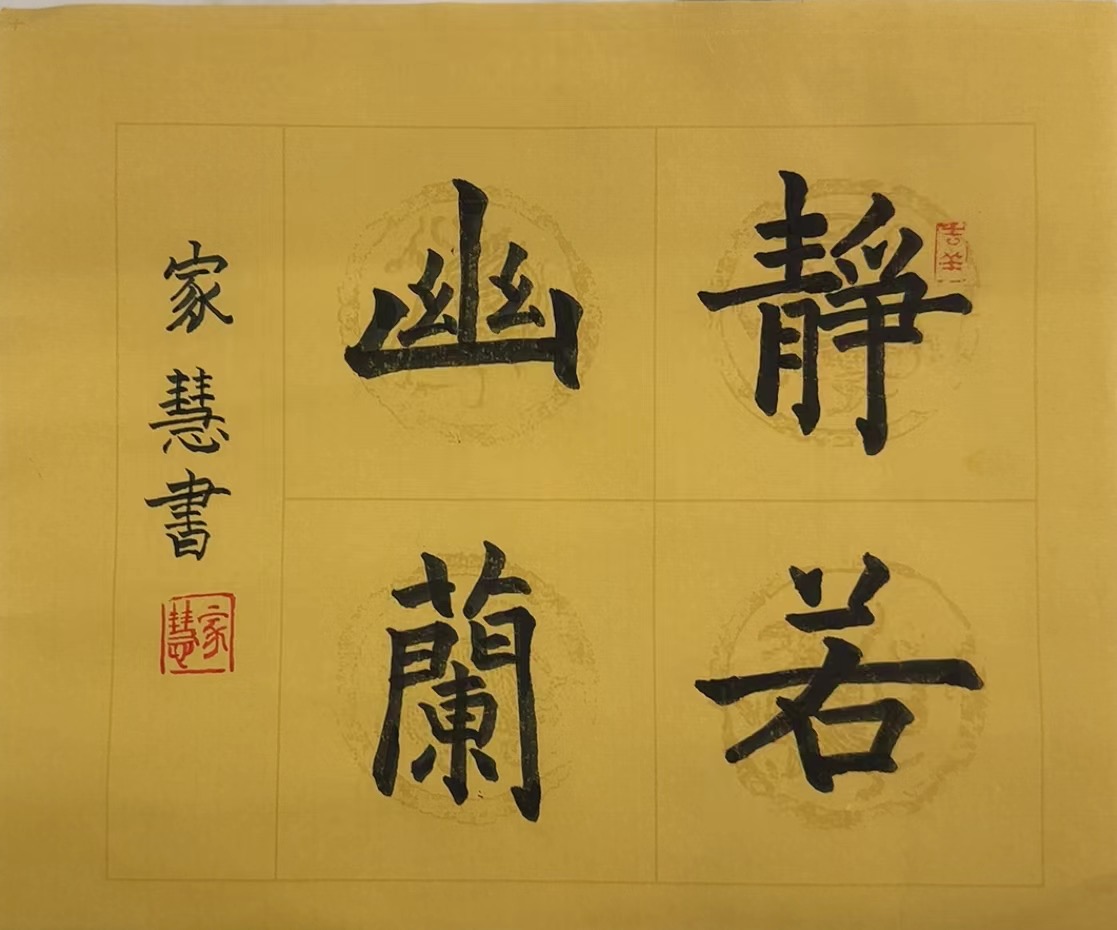 靜若
幽蘭
家慧書
家慧